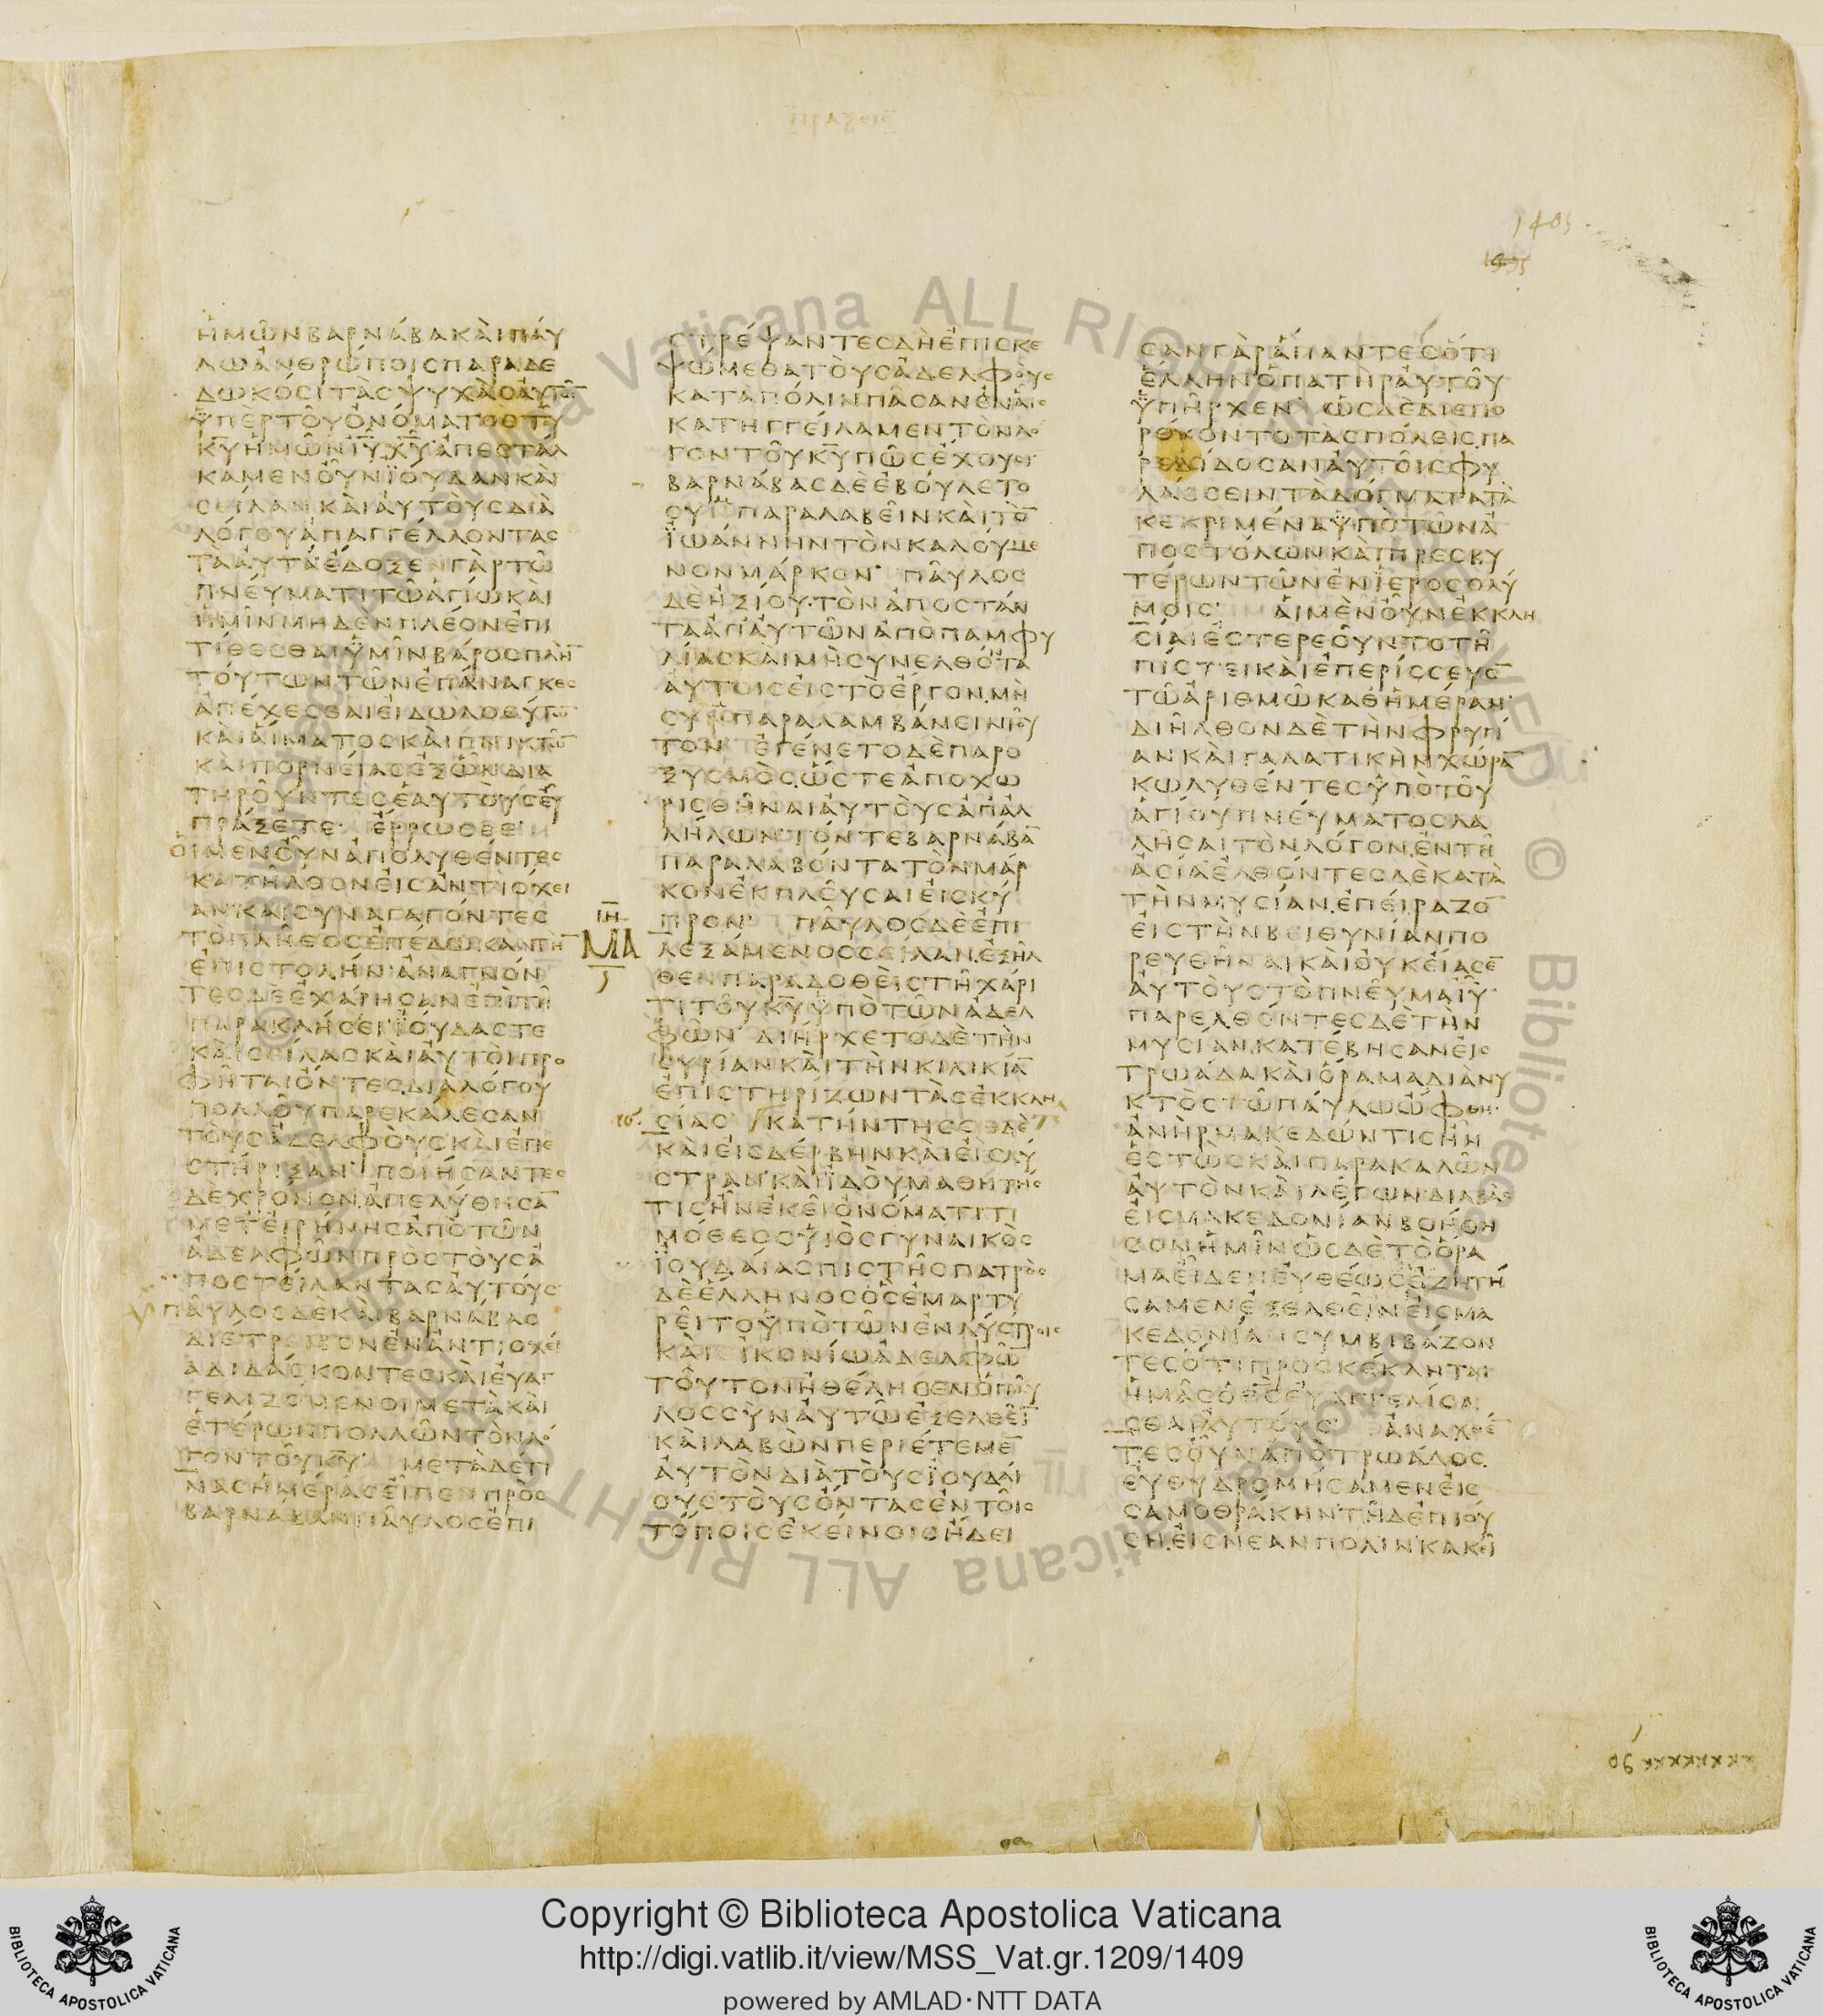 1405
ἡμῶν βαρνάβα καὶ πάυ
λω ἀνθρώποις παραδε
δωκόσι τὰς ψυχὰς αὐτῶ̅
ὑπὲρ τοῦ ὀνόματος τοῦ
κ̅υ̅ ἡμῶν ἰ̅υ̅ χ̅υ̅ ἀπεστάλ
καμεν οὖν ϊούδαν καὶ
σείλαν καὶ αὐτοὺς διὰ
λόγου ἀπαγγέλλοντας
τὰ αὐτά ἔδοξεν γὰρ τῶ
πνεύματι τῶ ἁγίω καὶ
ἡμῖν μηδὲν πλέον ἐπι
τίθεσθαι ὑμῖν βάρος πλὴ̅
τούτων τῶν ἐπάναγκες
ἀπέχεσθαι εἰδωλοθύτω̅
καὶ αἵματος καὶ πνικτῶ̅
καὶ πορνείας ἐξ ὧν δια
τηροῦντες ἑαυτοὺς εὖ
πράξετε ἔρρωσθε
ὁι μὲν οὖν ἀπολυθέντες
κατῆλθον εἰς ἀντιόχει
αν καὶ συναγαγόντες
τὸ πλῆθος ἐπέδωκαν τὴ̅
ἐπιστολήν ἀναγνόν
τες δὲ ἐχάρησαν ἐπὶ τῆ
παρακλήσει ϊούδας τε
καὶ σείλας καὶ αὐτοὶ προ
φῆται ὄντες διὰ λόγου
πολλοῦ παρεκάλεσαν
τοὺς ἀδελφοὺς καὶ ἐπε
στήριξαν ποιήσαντες
δὲ χρόνον ἀπελύθησα̅
μετ εἰρήνης ἀπὸ τῶν
ἀδελφῶν πρὸς τοὺς ἀ
ποστείλαντας αὐτούς
παῦλος δὲ καὶ βαρνάβας
διέτρειβον ἐν ἀντιοχεί
α διδάσκοντες καὶ εὐαγ
γελιζόμενοι μετὰ καὶ
ἑτέρων πολλῶν τὸν λό
γον τοῦ κ̅υ̅ μετὰ δέ τι
νας ἡμέρας εἶπεν πρὸς
βαρνάβαν παῦλος ἐπι
στρέψαντες δὴ ἐπισκε
ψώμεθα τοὺς ἀδελφοὺς
κατὰ πόλιν πᾶσαν ἐν αἷς
κατηγγείλαμεν τὸν λό
γον τοῦ κ̅υ̅ πῶς ἔχουσι
βαρνάβας δὲ ἐβούλετο
συμπαραλαβεῖν καὶ τὸ̅
ϊωάννην τὸν καλούμε
νον μάρκον παῦλος
δὲ ἠξίου τὸν ἀποστάν
τα ἀπ αὐτῶν ἀπὸ παμφυ
λίας καὶ μὴ συνελθόντα
αὐτοῖς εἰς τὸ ἔργον μὴ
συμπαραλαμβάνειν τοῦ
τον ἐγένετο δὲ παρο
ξυσμὸς ὥστε ἀποχω
ρισθῆναι αὐτοὺς ἀπ ἀλ
λήλων τόν τε βαρνάβα̅
παραλαβόντα τὸν μάρ
κον ἐκπλεῦσαι εἰς κύ
ι̅η̅
προν παῦλος δὲ ἐπι
ΜΑ
λεξάμενος σείλαν ἐξῆλ
θεν παραδοθεὶς τῆ χάρι
τι τοῦ κ̅υ̅ ὑπὸ τῶν ἀδελ
φῶν διήρχετο δὲ τὴν
συρίαν καὶ τὴν κιλικία̅
ἐπιστηρίζων τὰς ἐκκλη
σίας κατήντησε δὲ
καὶ εἰς δέρβην καὶ εἰς λύ
στραν καὶ ϊδοὺ μαθητής
τις ἦν ἐκεῖ ὀνόματι τι
μόθεος ὑιὸς γυναικὸς
ϊουδαίας πιστῆς πατρὸς
δὲ ἕλληνος ὃς ἐμαρτυ
ρεῖτο ὑπὸ τῶν ἐν λύστροις
καὶ εἰκονίω ἀδελφῶ̅
τοῦτον ἠθέλησεν ὁ παῦ
λος σὺν αὐτῶ ἐξελθεῖ̅
καὶ λαβὼν περιέτεμε̅
αὐτὸν διὰ τοὺς ϊουδαί
ους τοὺς ὄντας ἐν τοῖς
τόποις ἐκείνοις ἤδει
σαν γὰρ ἅπαντες ὅτι
ἕλλην ὁ πατὴρ αὐτοῦ
ὑπῆρχεν ὡς δὲ διεπο
ρεύοντο τὰς πόλεις πα
ρεδίδοσαν αὐτοῖς φυ
λάσσειν τὰ δόγματα τὰ
κεκριμένα ὑπὸ τῶν ἀ
ποστόλων καὶ πρεσβυ
τέρων τῶν ἐν ϊεροσολύ
μοις αἱ μὲν οὖν ἐκκλη
σίαι ἐστερεοῦντο τῆ
πίστει καὶ ἐπερίσσευο̅
τῶ ἀριθμῶ καθ ἡμέραν
διῆλθον δὲ τὴν φρυγί
αν καὶ γαλατικὴν χώρα̅
κωλυθέντες ὑπὸ τοῦ
ἁγίου πνεύματος λα
λῆσαι τὸν λόγον ἐν τῆ
ἀσία ἐλθόντες δὲ κατὰ
τὴν μυσίαν ἐπείραζο̅
εἰς τὴν βειθυνίαν πο
ρευθῆναι καὶ οὐκ εἴασε̅
αὐτοὺς τὸ πνεῦμα ἰ̅υ̅
παρελθόντες δὲ τὴν
μυσίαν κατέβησαν εἰς
τρωάδα καὶ ὅραμα διὰ νυ
κτὸς τῶ παύλω ὤφθη
ἀνὴρ μακεδών τις ἦν
ἑστὼς καὶ παρακαλῶν
αὐτὸν καὶ λέγων διαβὰς
εἰς μακεδονίαν βοήθη
σον ἡμῖν ὡς δὲ τὸ ὅρα
μα εἶδεν εὐθέως ἐζητή
σαμεν ἐξελθεῖν εἰς μα
κεδονίαν συμβιβάζον
τες ὅτι προσκέκληται
ἡμᾶς ὁ θ̅ς̅ εὐαγγελίσα
σθαι αὐτούς ἀναχθέ̅
τες οὖν ἀπὸ τρωάδος
εὐθυδρομήσαμεν εἰς
σαμοθράκην τῆ δὲ ἐπιού
ση εἰς νέαν πόλιν κακεῖ
Copyright © Biblioteca Apostolica Vaticana
http://digi.vatlib.it/view/MSS_Vat.gr.1209/1409
powered by AMLAD·NTT DATA
BIBLIOTECA APOSTOLICA VATICANA
BIBLIOTECA APOSTOLICA VATICANA